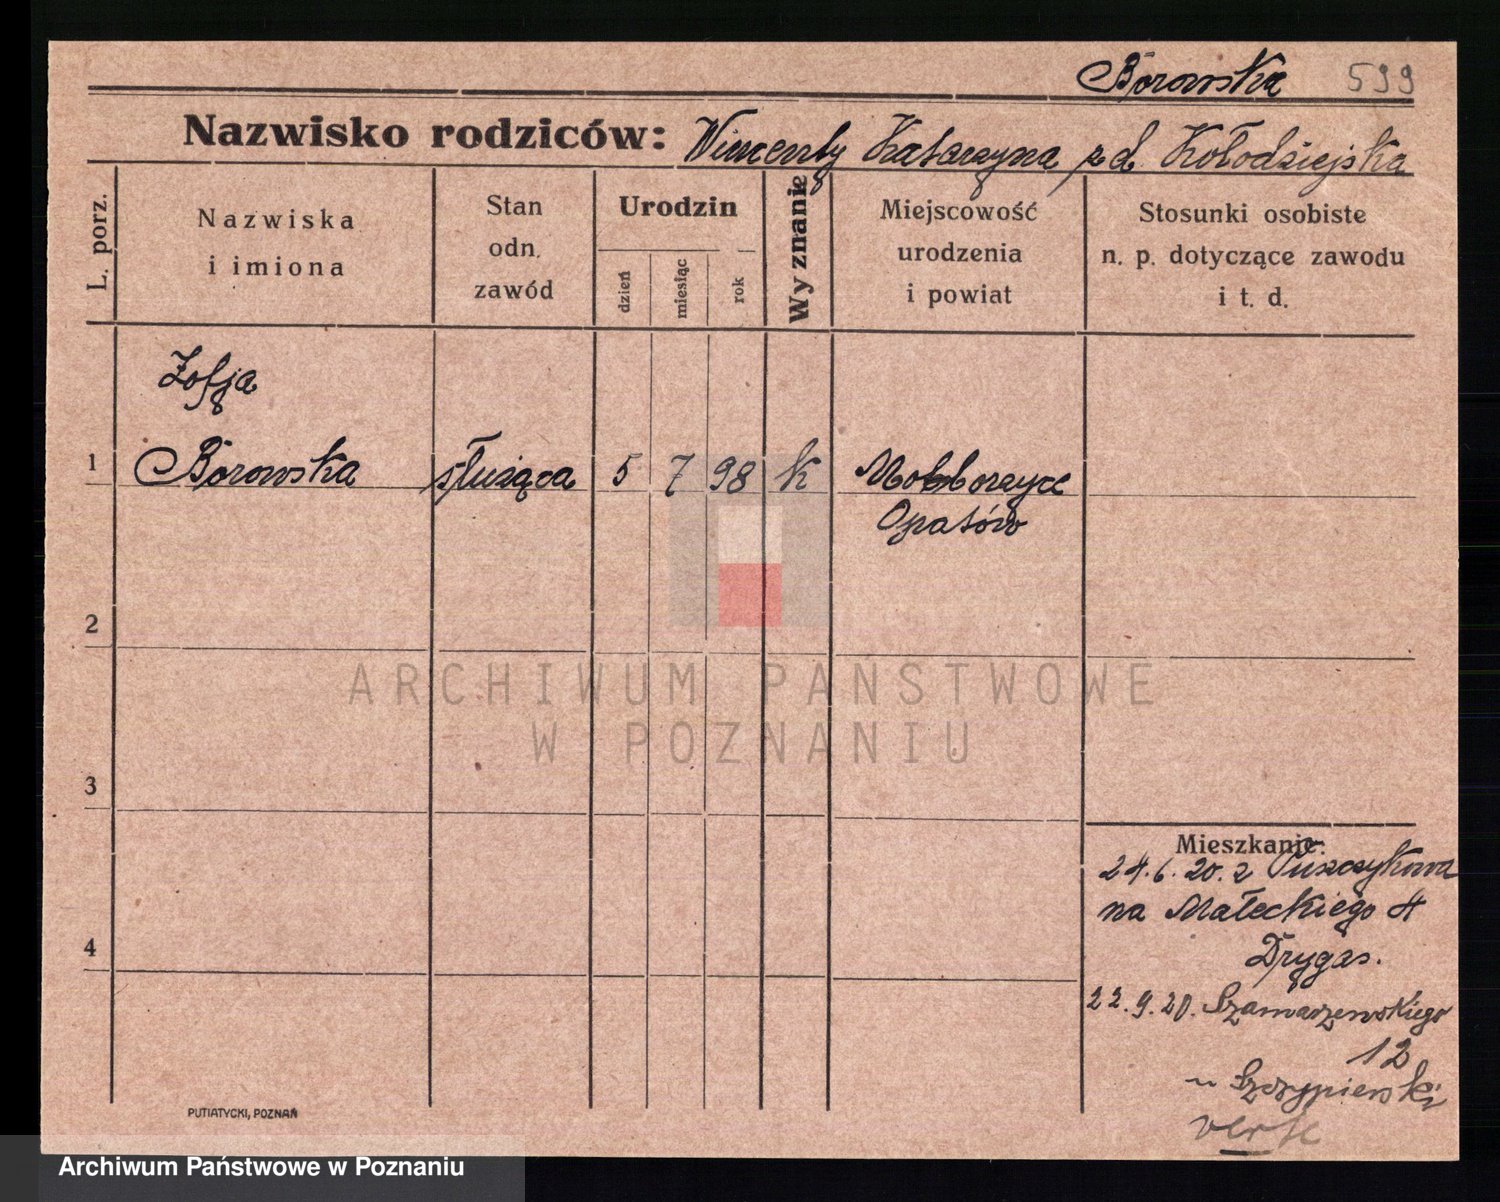 Borowska 599
Nazwisko rodziców: Wincenty Katarzyna z d. Kołodziejska
L. porz.
Nazwiska
i imiona
Stan
odn.
zawód
Urodzin
dzień
miesiąc
rok
Wyznanie
Miejscowość
urodzenia
i powiat
Stosunki osobiste
n. p. dotyczące zawodu
i t. d.
Zofja
1 Borowska służąca 5 7 98 k
Opatów
2
3
4
ARCHIWUM PAŃSTWOWE
W POZNANIU
Mieszkanie:
24.6.20. z Puszczykowa
na Małeckiego 4
Drygas.
22.9.20. Szamarzewskiego
12
u Szczypierski
verte
PUTIATYCKI, POZNAŃ
Archiwum Państwowe w Poznaniu